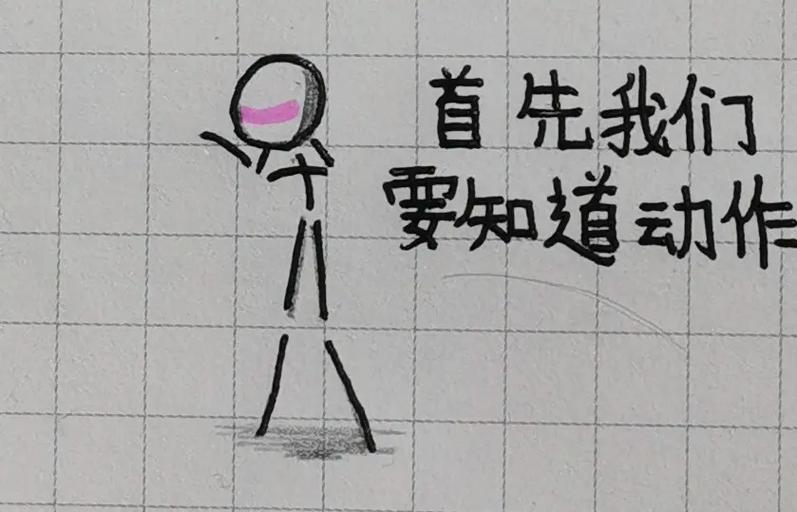 首先我们
要知道动作